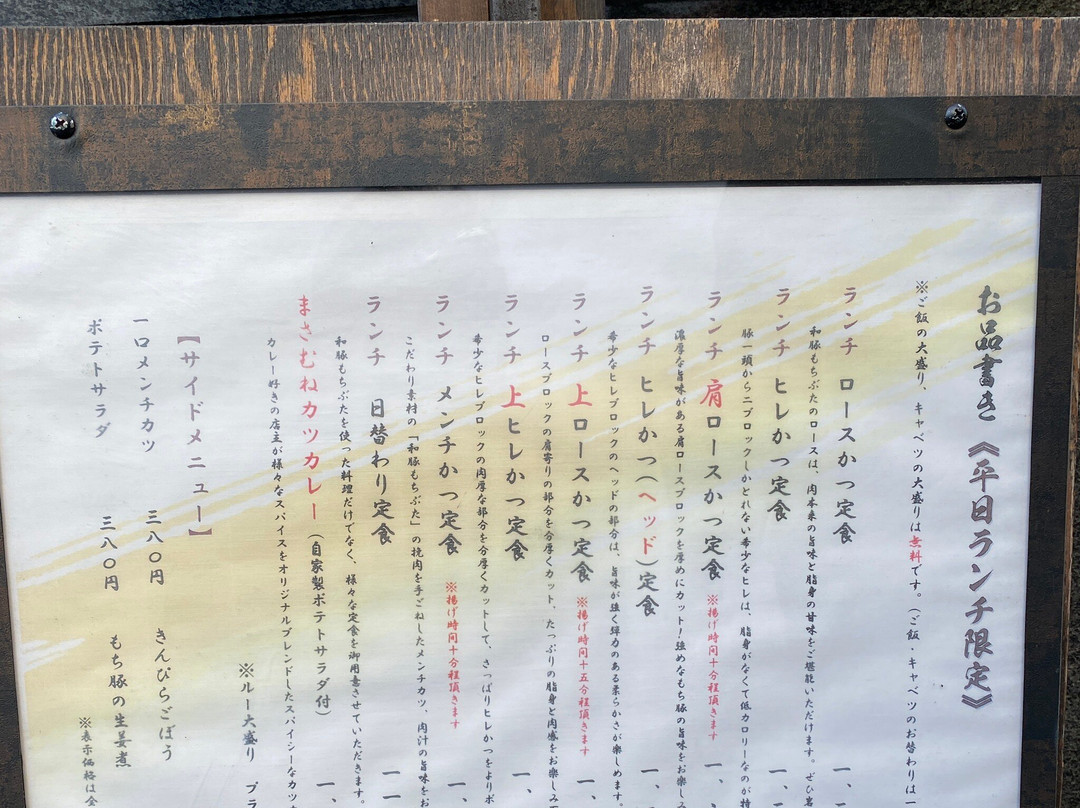 お品書き《平日ランチ限定》
※ご飯の大盛り、キャベツの大盛りは無料です。（ご飯・キャベツのお替わりは一
ランチ ロースかつ定食 一、
和豚もちぶたのロースは、肉本来の旨味と脂身の甘味をご堪能いただけます。ぜひ岩
ランチ ヒレかつ定食 一、
豚一頭から二ブロックしかとれない希少なヒレは、脂身がなくて低カロリーなのが特
ランチ 肩ロースかつ定食 ※揚げ時間十分程頂きます 一、
濃厚な旨味がある肩ロースブロックを厚めにカット！強めなもち豚の旨味をお楽し
ランチ ヒレかつ（ヘッド）定食 一、
希少なヒレブロックのヘッドの部分は、旨味が強く弾力のある柔らかさが楽しめます。
ランチ 上ロースかつ定食 ※揚げ時間十五分程頂きます 一、
ロースブロックの肩寄りの部分を分厚くカット、たっぷりの脂身と肉感をお楽しみ
ランチ 上ヒレかつ定食 一、
希少なヒレブロックの肉厚な部分を分厚くカットして、さっぱりヒレかつをよりボ
ランチ メンチかつ定食 ※揚げ時間十分程頂きます 一、
こだわり素材の「和豚もちぶた」の挽肉を手ごねしたメンチカツ、肉汁の旨味をお
ランチ 日替わり定食 一
和豚もちぶたを使った料理だけでなく、様々な定食を御用意させていただきます。
まさむねカツカレー（自家製ポテトサラダ付） 一、
カレー好きの店主が様々なスパイスをオリジナルブレンドしたスパイシーなカツカ
※ルー大盛り プラ
【サイドメニュー】
一口メンチカツ 三八〇円 きんぴらごぼう
ポテトサラダ 三八〇円 もち豚の生姜煮
※表示価格は全